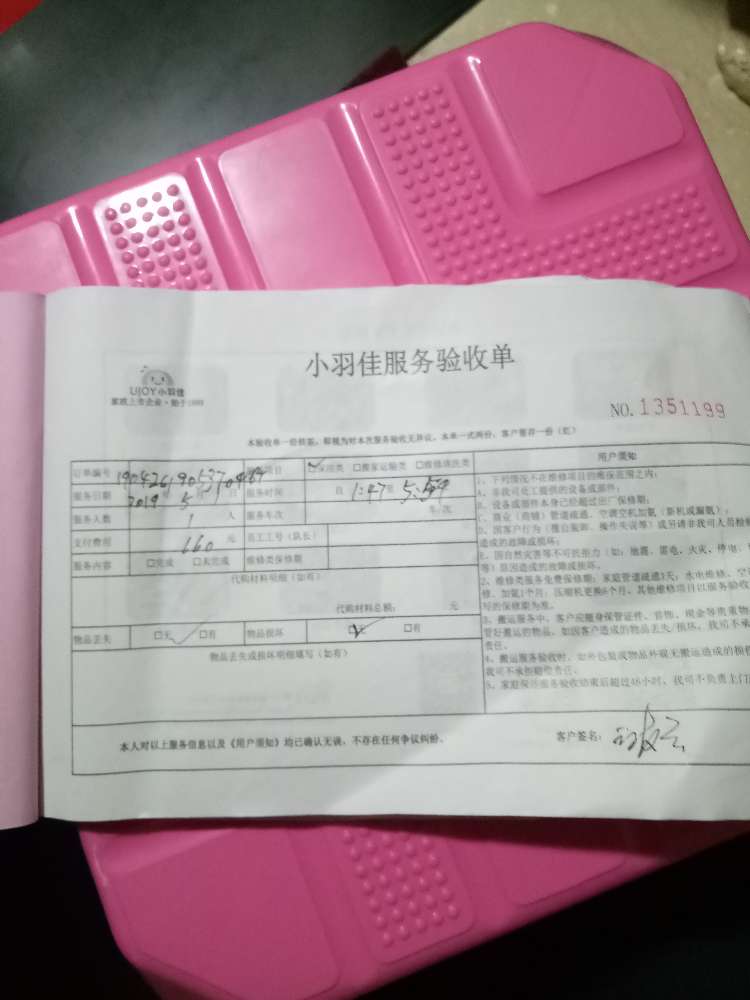 小羽佳服务验收单
UJOY小羽佳
家政上市企业·始于1999
NO.1351199
本验收单一经核签,即视为对本次服务验收无异议。本单一式两份,客户留存一份(红)
订单编号 项目 □保洁类 □搬家运输类 □维修清洗类
服务日期 2019 5 月 日 服务时间 自 1:47 至 5:54
服务人数 1 人 服务车次 车/次
支付费用 160 元 员工工号(队长)
服务内容 □完成 □未完成 维修类保修期
代购材料明细(如有)
代购材料总额: 元
物品丢失 □无 □有 物品损坏 □无 □有
物品丢失或损坏明细填写(如有)
用户须知
1、下列情况不在维修项目的维保范围之内:
A、非我司处工提供的设备或部件;
B、设备或部件本身已经超过出厂保修期;
C、商业(商铺)管道疏通、空调空机加氨(新机或漏氨);
D、因客户行为(擅自装卸、操作失误等)或另请非我司人员检修
造成的故障或损坏;
E、因自然灾害等不可抗拒力(如:地震、雷电、火灾、停电、
等)原因造成的故障或损坏。
2、维修类服务免费保修期:家庭管道疏通3天;水电维修、空
修、加氨1个月;压缩机更换6个月。其他维修项目以服务验收
写的保修期为准。
3、搬运服务中,客户应随身保管证件、首饰、现金等贵重物
管好搬运的物品。如因客户造成的物品丢失/损坏,我司不承
责任。
4、搬运服务验收时,如外包装或物品外观无搬运造成的损
我司不承担赔偿责任。
5、家庭保洁服务验收结束后超过48小时,我司不负责上门
本人对以上服务信息以及《用户须知》均已确认无误,不存在任何争议纠纷。
客户签名: